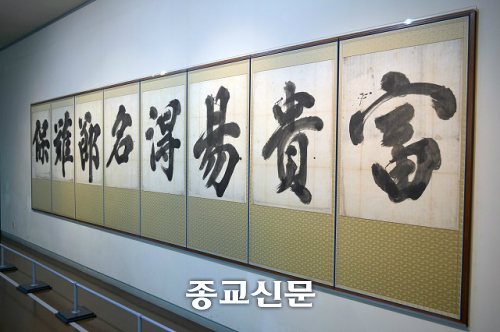 富貴易得名節難保
종교신문